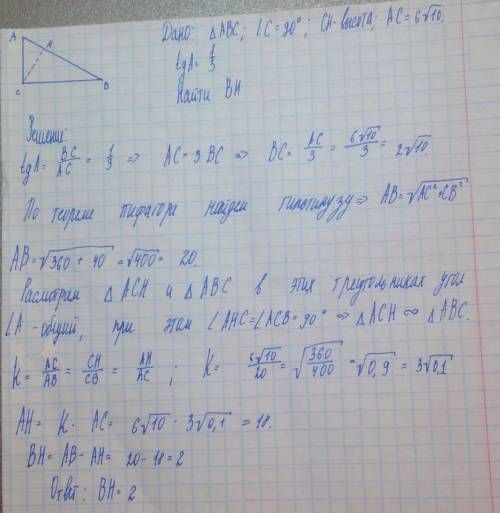 A H C B
Дано: △ABC; ∠C=90°; CH-высота; AC=6√10.
tgA=1/3
Найти BH
Решение:
tgA= BC/AC = 1/3 => AC=3BC => BC= AC/3 = 6√10/3 = 2√10
По теореме пифагора найдем гипотинузу=> AB=√AC²+CB²
AB=√360+40=√400= 20.
Расмотрам △ACH и △ABC в этих треугольниках угол
∠A-общий, при этом ∠AHC=∠ACB=90° => △ACH ∞ △ABC.
K= AC/AB = CH/CB = AH/AC ; K= 6√10/20 = √360/400 =√0,9 = 3√0,1
AH= K· AC= 6√10 · 3√0,1 =18.
BH= AB-AH= 20-18=2
Ответ: BH=2